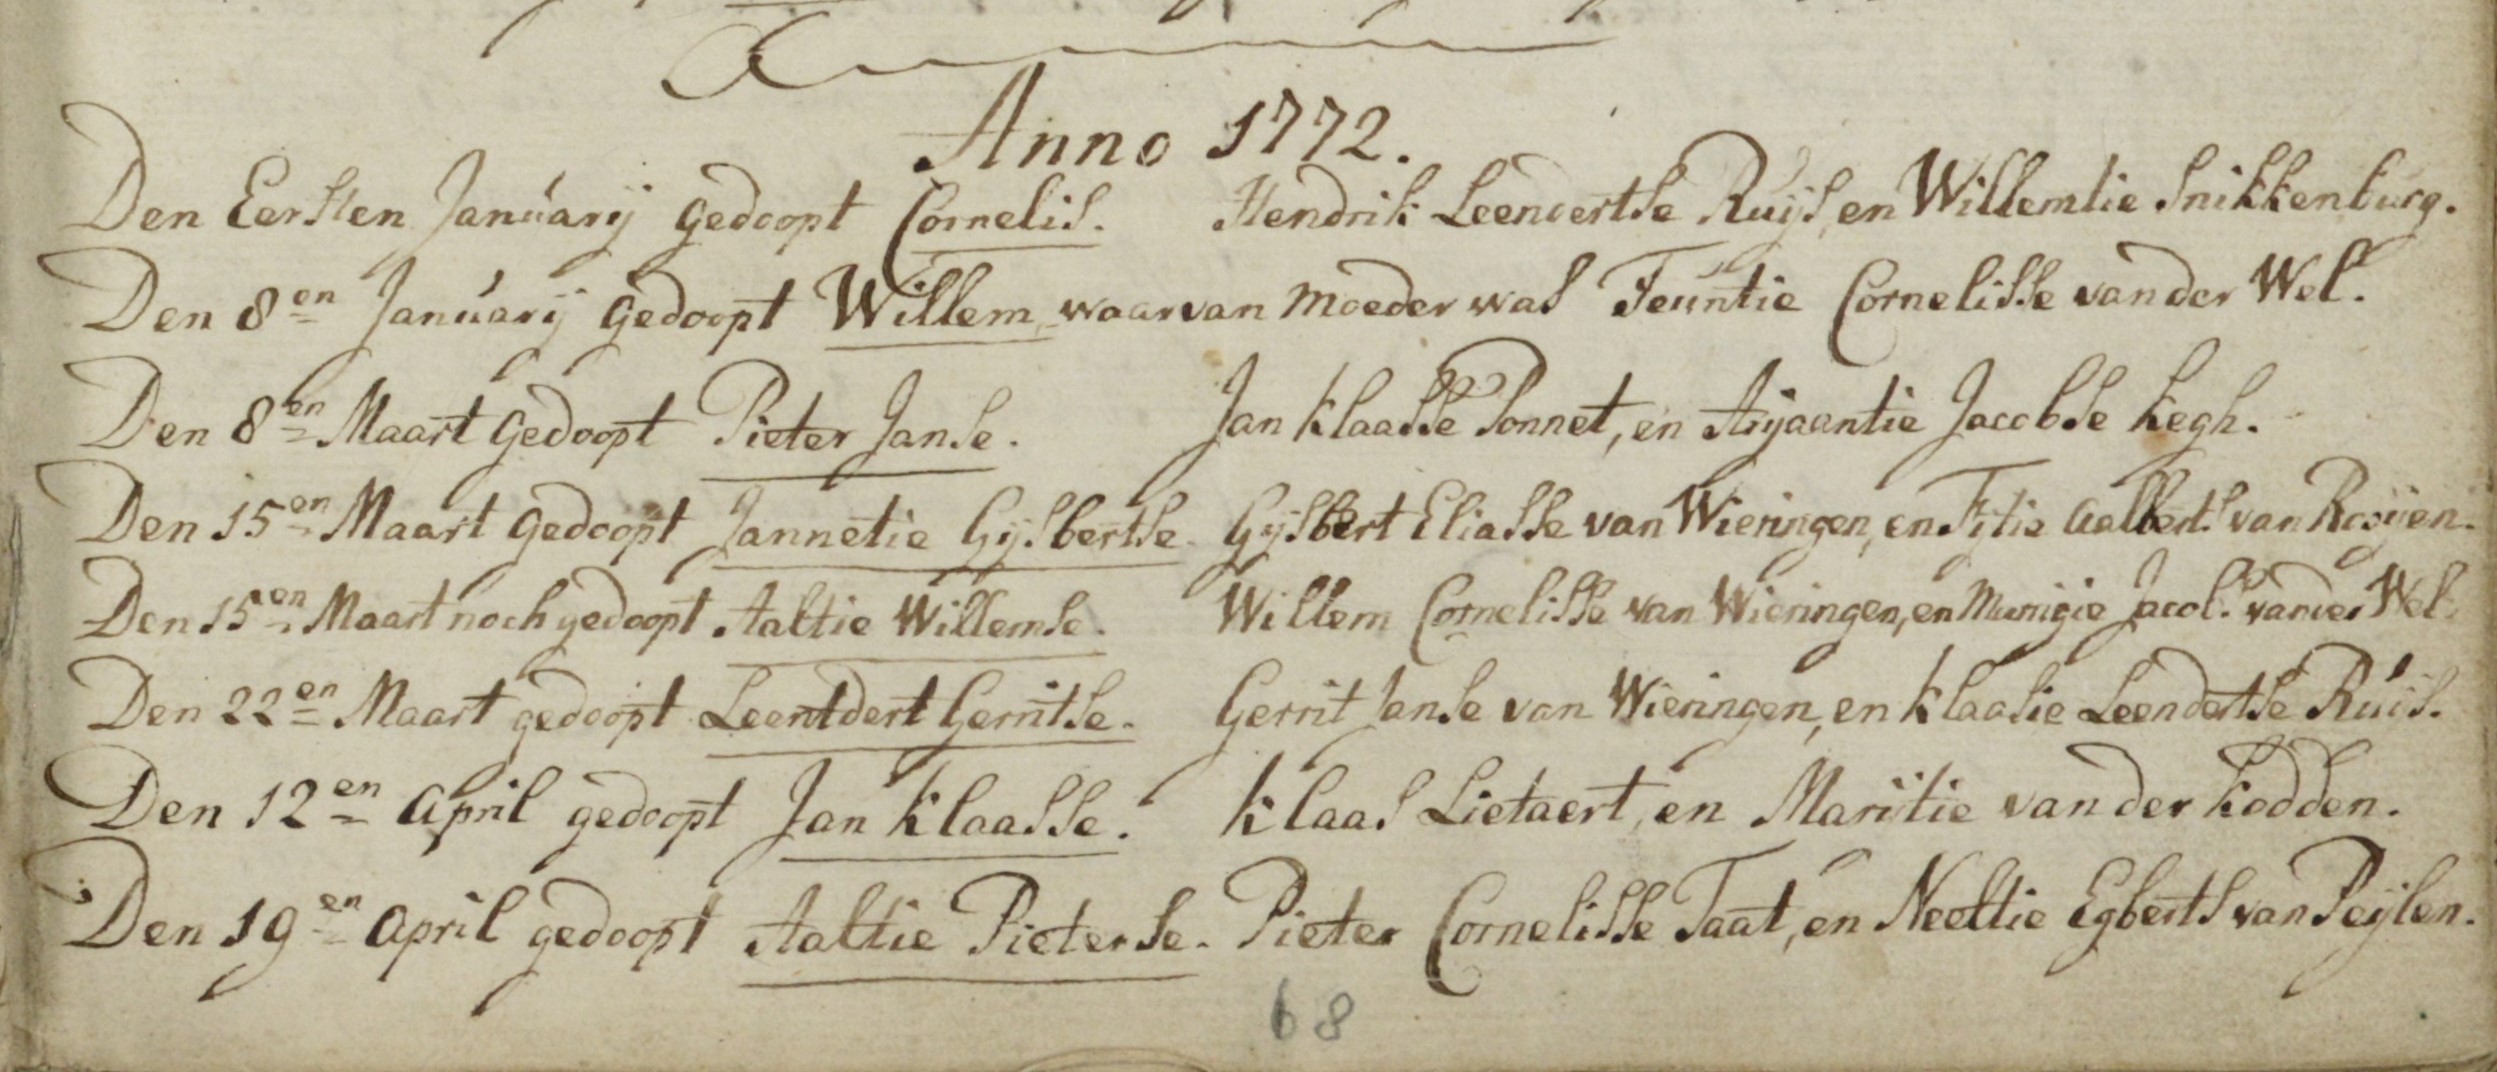 Anno 1772.
Den Eersten Januarij gedoopt Cornelis. Hendrik Leendertse Ruijs, en Willemtie Snikkenburg.
Den 8en Januarij gedoopt Willem, waarvan moeder was Teuntie Cornelisse van der Wel.
Den 8en Maart gedoopt Pieter Janse. Jan Klaasse Ponnet, en Arijaantie Jacobse Kegh.
Den 15en Maart gedoopt Jannetie Gijsbertse. Gijsbert Eliasse van Wieringen, en Fijtie Aalberts van Rooijen.
Den 15en Maart noch gedoopt Aaltie Willemse. Willem Cornelisse van Wieringen, en Jacob. van der Wel.
Den 22en Maart gedoopt Leentdert Gerritse. Gerrit Janse van Wieringen, en Klaasie Leendertse Ruijs.
Den 12en April gedoopt Jan Klaasse. Klaas Lietaert, en Marijtie van der Kodden.
Den 19en April gedoopt Aaltie Pieterse. Pieter Cornelisse Taat, en Neeltie Egberts van Peijlen.
68